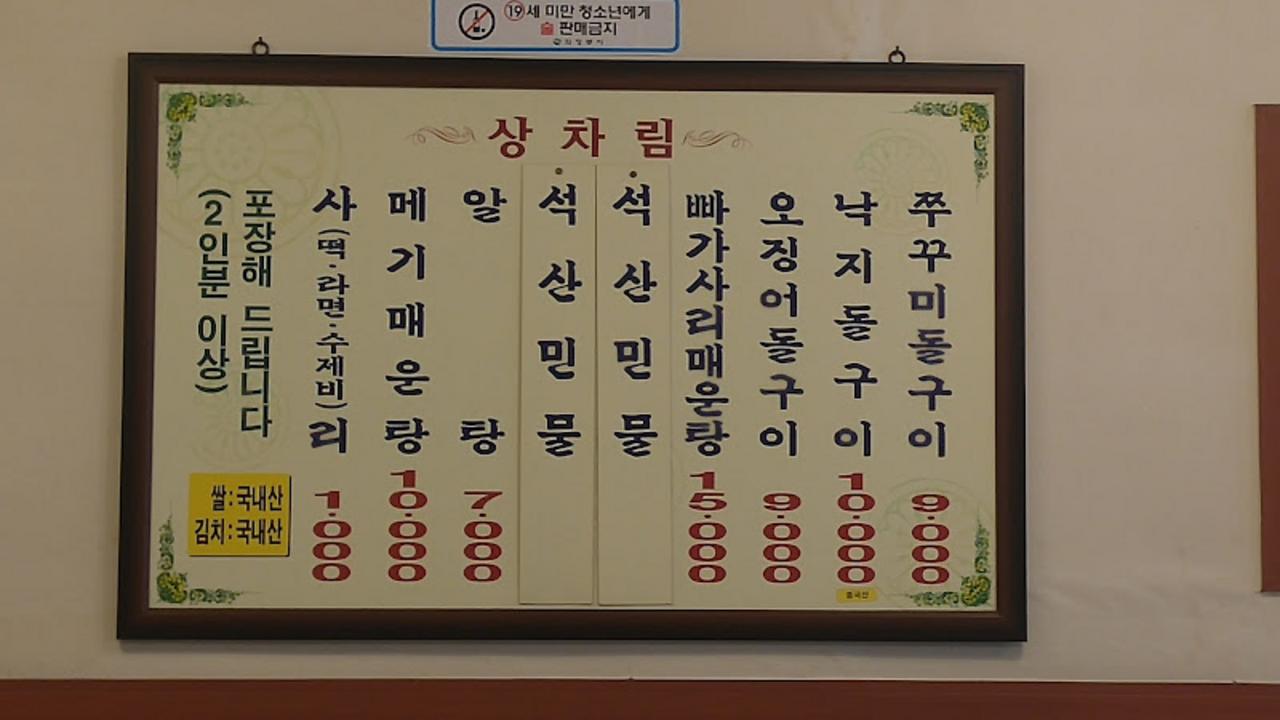 19세 미만 청소년에게
술 판매금지
의정부시
상차림
쭈꾸미돌구이 9.000
낙지돌구이 10.000
중국산
오징어돌구이 9.000
빠가사리매운탕 15.000
석산민물
석산민물
알탕 7.000
메기매운탕 10.000
사(떡·라면·수제비)리 1.000
포장해 드립니다
(2인분 이상)
쌀:국내산
김치:국내산